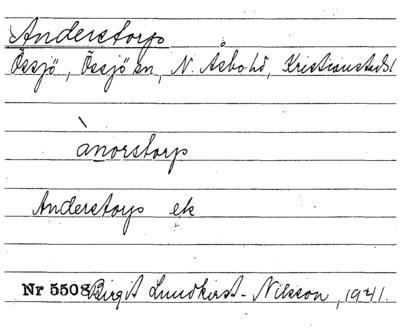 Anderstorp
Össjö, Össjö sn, N. Åsbo hd, Kristianstads l
ànorstorp
Anderstorps ek
Nr 5508 Birgit Lundkvist-Nilsson, 1941.